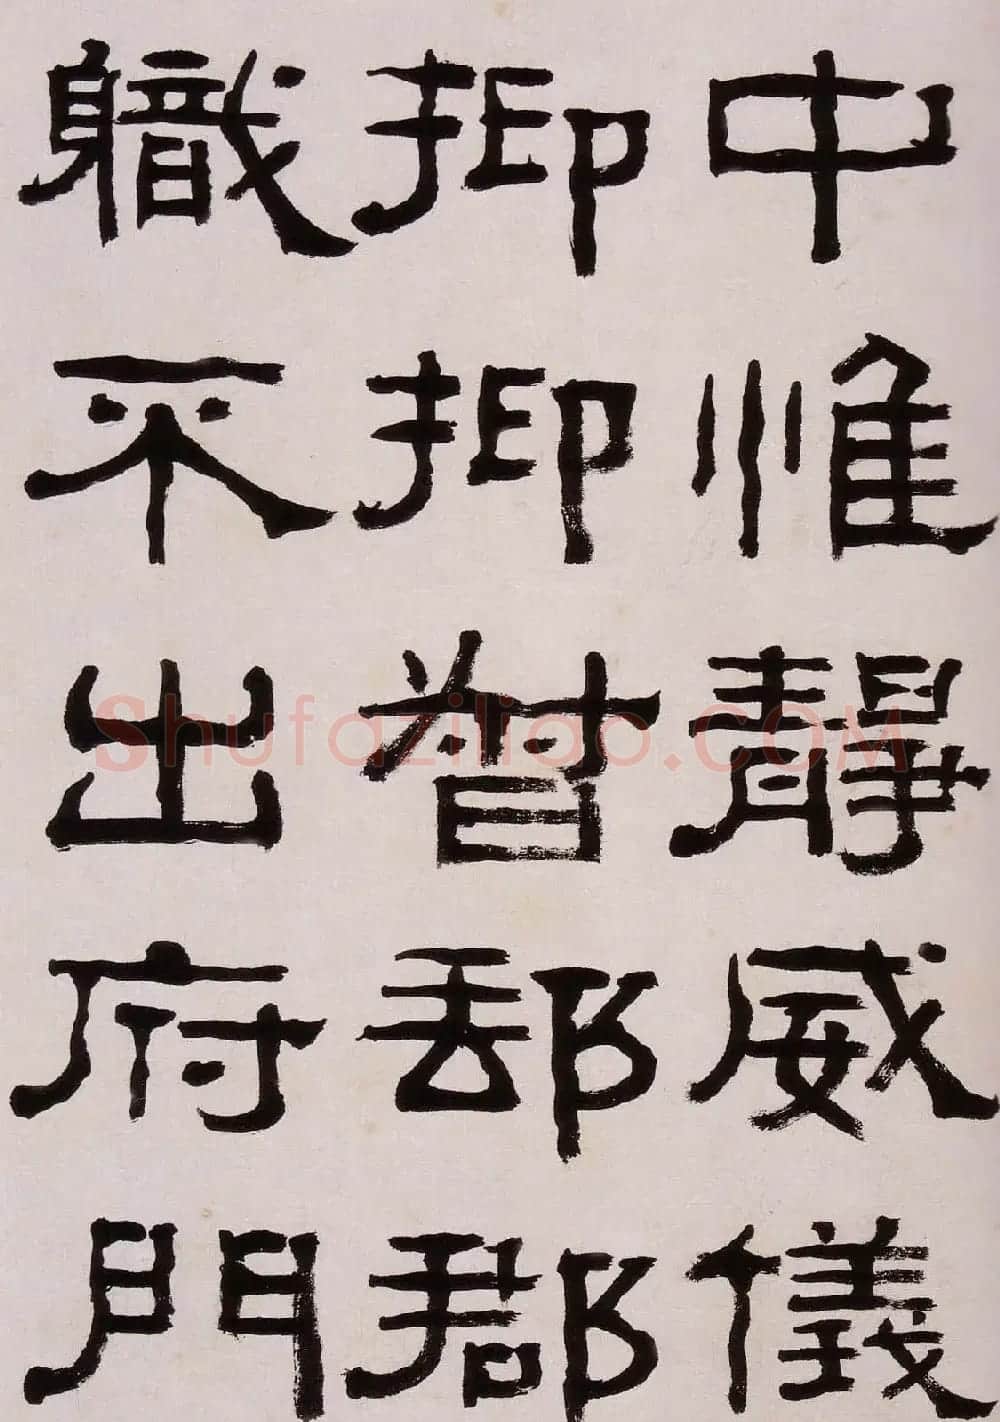 中惟靜威儀
抑抑督郵郡
職不出府門
Shufaziliao.COM